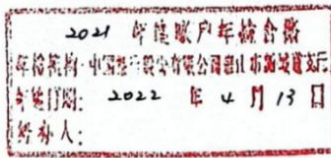 2021 年度账户年检合格
年检机构:中国 股份有限公司 山市 支行
年检日期: 2022 年 4 月 13 日
经办人: